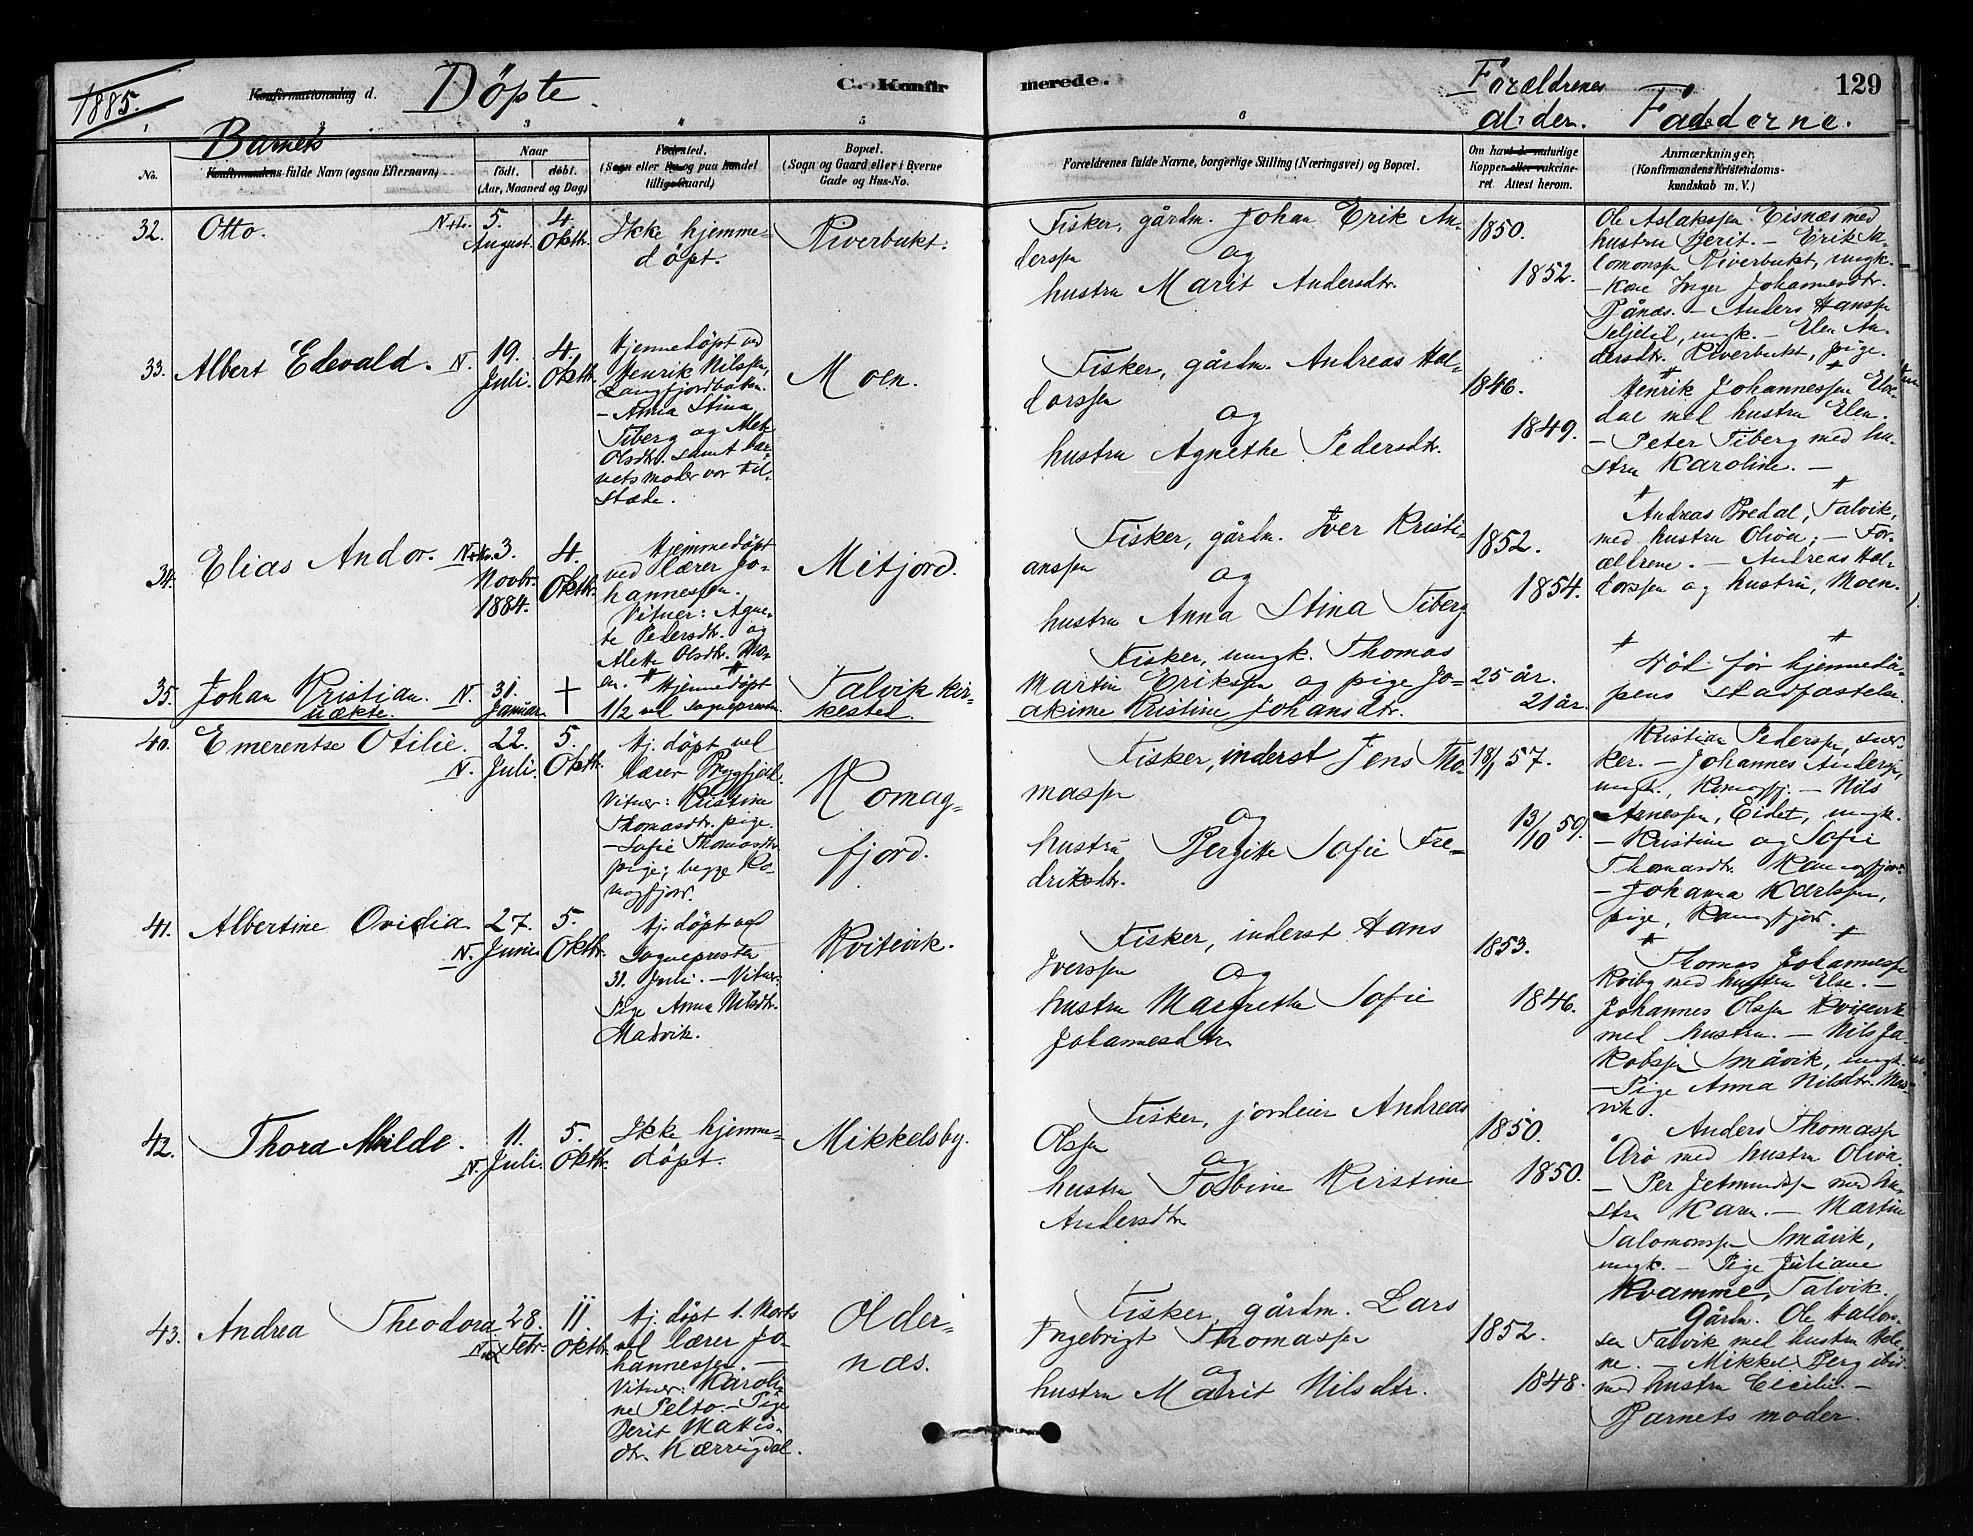 1885.
Konfirmationsdag d.
Döpte.
C. Konfir
merede.
Forældrenes
alder.
Fadderne.
129
1
2
3
4
5
6
Barnets
No.
Konfirmandens fulde Navn (ogsaa Efternavn)
Naar
födt. döbt.
(Aar, Maaned og Dag)
Fødested,
(Sogn eller By og paa Landet
tillige Gaard)
Bopæl.
(Sogn og Gaard eller i Byerne
Gade og Hus-No.
Forældrenes fulde Navne, borgerlige Stilling (Næringsvei) og Bopæl.
Om havt de naturlige
Kopper eller vakcine-
ret. Attest herom.
Anmærkninger.
(Konfirmandens Kristendoms-
kundskab m. V.)
32. Otto.
5.
August.
4.
Oktbr.
Ikke hjemme-
döpt.
Riverbukt.
Fisker, gårdm. Johan Erik An-
derssen
og
hustru Marit Andersdtr.
1850.
1852.
Ole Aslakssen Eisnæs med
hustru Berit. – Erik Sa-
lomonsen Riverbukt, ungk.
– Kone Inger Johannesdtr.
– Anders Hanssen
ungk. – Elen An-
dersdtr. Riverbukt, pige.
33. Albert Edevald. N.
19.
Juli.
4.
Oktbr.
Hjemmedöpt ved
Henrik Nilssen,
Langfjordbotn.
– Anna Stina
Fiberg og Alet
Olsdtr. samt bar-
nets moder var til-
stæde.
Moen.
Fisker, gårdm. Andreas Hal-
dorssen
og
hustru Agnethe Pedersdtr.
1846.
1849.
Henrik Johannessen
med hustru Elen.
– Peter Fiberg med hu-
stru Karoline. –
34. Elias Andor.
3.
Novbr.
1884.
4.
Oktbr.
Hjemmedöpt
ved lærer Jo-
hannessen.
Vitner: Agne-
te Pedersdtr. og
Alette Olsdtr. Mo-
en.
Mitfjord.
Fisker, gårdm. Iver Kristi-
anssen
og
hustru Anna Stina Fiberg
1852.
1854.
Andreas Bredal, Talvik,
med hustru Oliva; – For-
ældrene. – Andreas Hal-
dorssen og hustru, Moen.
35. Johan Kristian. N.
uækte.
31.
Januar.
+
Hjemmedöpt
1/2 ved sognepresten
Talvik kir-
kested.
Fisker, ungk. Thomas
Martin Erikssen og pige Jo-
akime Kristine Johansdtr.
25 år.
21 år.
Död för hjemmedå-
pens stadfæstelse
40. Emerentse Otilie.
N.
22.
Juli.
5.
Oktbr.
Hj. döpt ved
lærer Bryggfjeld.
Vitner: Kristine
Thomasdtr. pige.
– Sofie Thomasdtr.
pige; begge Ko-
magfjord.
Komag-
fjord.
Fisker, inderst Jens Tho-
massen
og
hustru Bergitte Sofie Fre-
driksdtr.
18/1 57.
13/10 59.
Kristian Pederssen,
– Johannes Anderssen,
ungk., Komagfj. – Nils
Arnessen, Eidet, ungk.
– Kristine og Sofie
Thomasdtr. Komagfjord
– Johanna Karlssen,
pige, Komagfjord.
41. Albertine Ovidia
N.
27.
Juni
5.
Oktbr.
Hj. döpt ved
Sognepresten
31. Juli. – Vitner:
Pige Anna Nilsdtr.
Masvik.
Kvitevik.
Fisker, inderst Hans
Iverssen
og
hustru Margrethe Sofie
Johannesdtr.
1853.
1846.
Thomas Johannessen
med hustru Else. –
Johannes Olssen Kvitevik
med hustru. – Nils Ja-
kobssen Småvik, ungk.
– Pige Anna Nilsdtr. Mas-
vik.
42. Thora Milde.
N.
11.
Juli.
5.
Oktbr.
Ikke hjemme-
döpt.
Mikkelsby.
Fisker, jordeier Andreas
Olssen
og
hustru Tobine Kirstine
Andersdtr.
1850.
1850.
Anders Thomassen
Årö med hustru Oliva.
– Per Jetmundssen med hu-
stru Karen. – Martin
Salomonssen Småvik,
ungk. – Pige Juliane
Kvamme, Talvik.
43. Andrea Theodora
28.
Febr.
11.
Oktbr.
Hj. döpt 1. Marts
ved lærer Jo-
hannessen. –
Vitner: Karoli-
ne Pelto. – Pige
Berit Mattis-
dtr. Kærringdal.
Older-
næs.
Fisker, gårdm. Lars
Ingebrigt Thomassen
og
hustru Marit Nilsdtr.
1852.
1848.
Gårdm. Ole
Talvik med hustru
– Mikkel Berg ibid.
med hustru Cecilie. –
Barnets moder.